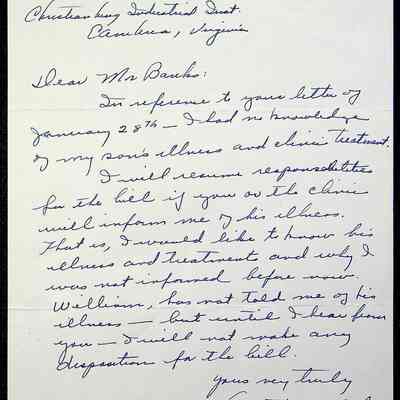 Christiansburg Industrial Inst.
Cambria, Virginia
Dear Mr Banks:
In reference to your letter of
January 28th — I had no knowledge
of my son's illness and clinic treatment.
I will resume responsibilities
for the bill if you or the clinic
will inform me of his illness.
That is, I would like to know his
illness and treatment and why I
was not informed before now.
William, has not told me of his
illness — but until I hear from
you — I will not make any
disposition for the bill.
yours very truly